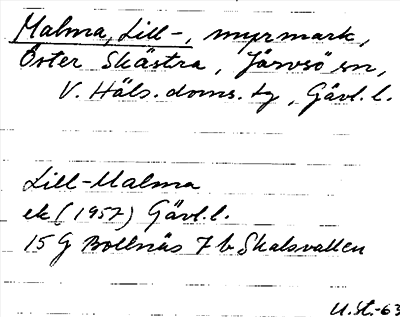 Malma, Lill-, myrmark,
Öster Skästra, Järvsö sn,
V. Häls. doms. tg, Gävl. l.
Lill-Malma
ek (1957) Gävl. l.
15 G Bollnäs 7 b Skalsvallen
U.St.-63